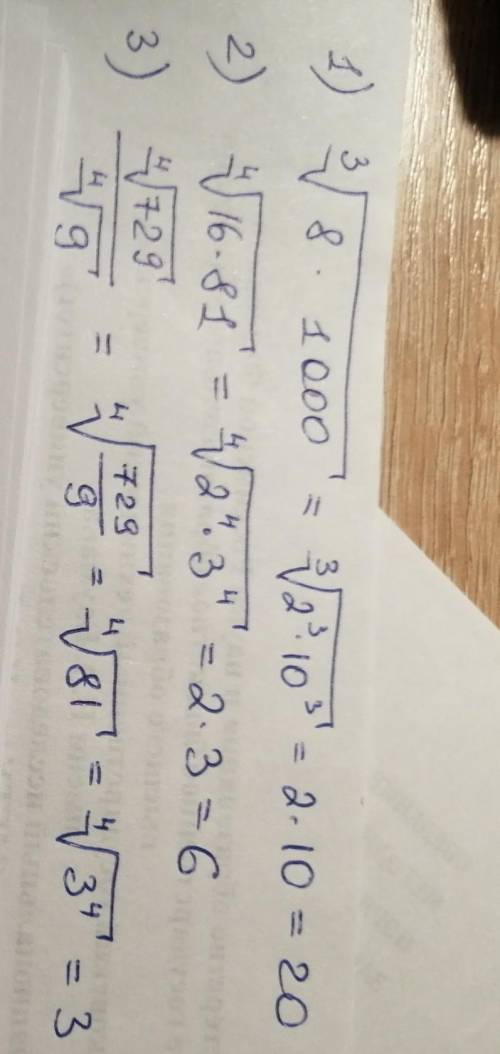 1) ∛(8 · 1000) = ∛(2³·10³) = 2·10 = 20
2) ∜(16·81) = ∜(2⁴·3⁴) = 2·3 = 6
3) ∜729 / ∜9 = ∜(729/9) = ∜81 = ∜(3⁴) = 3